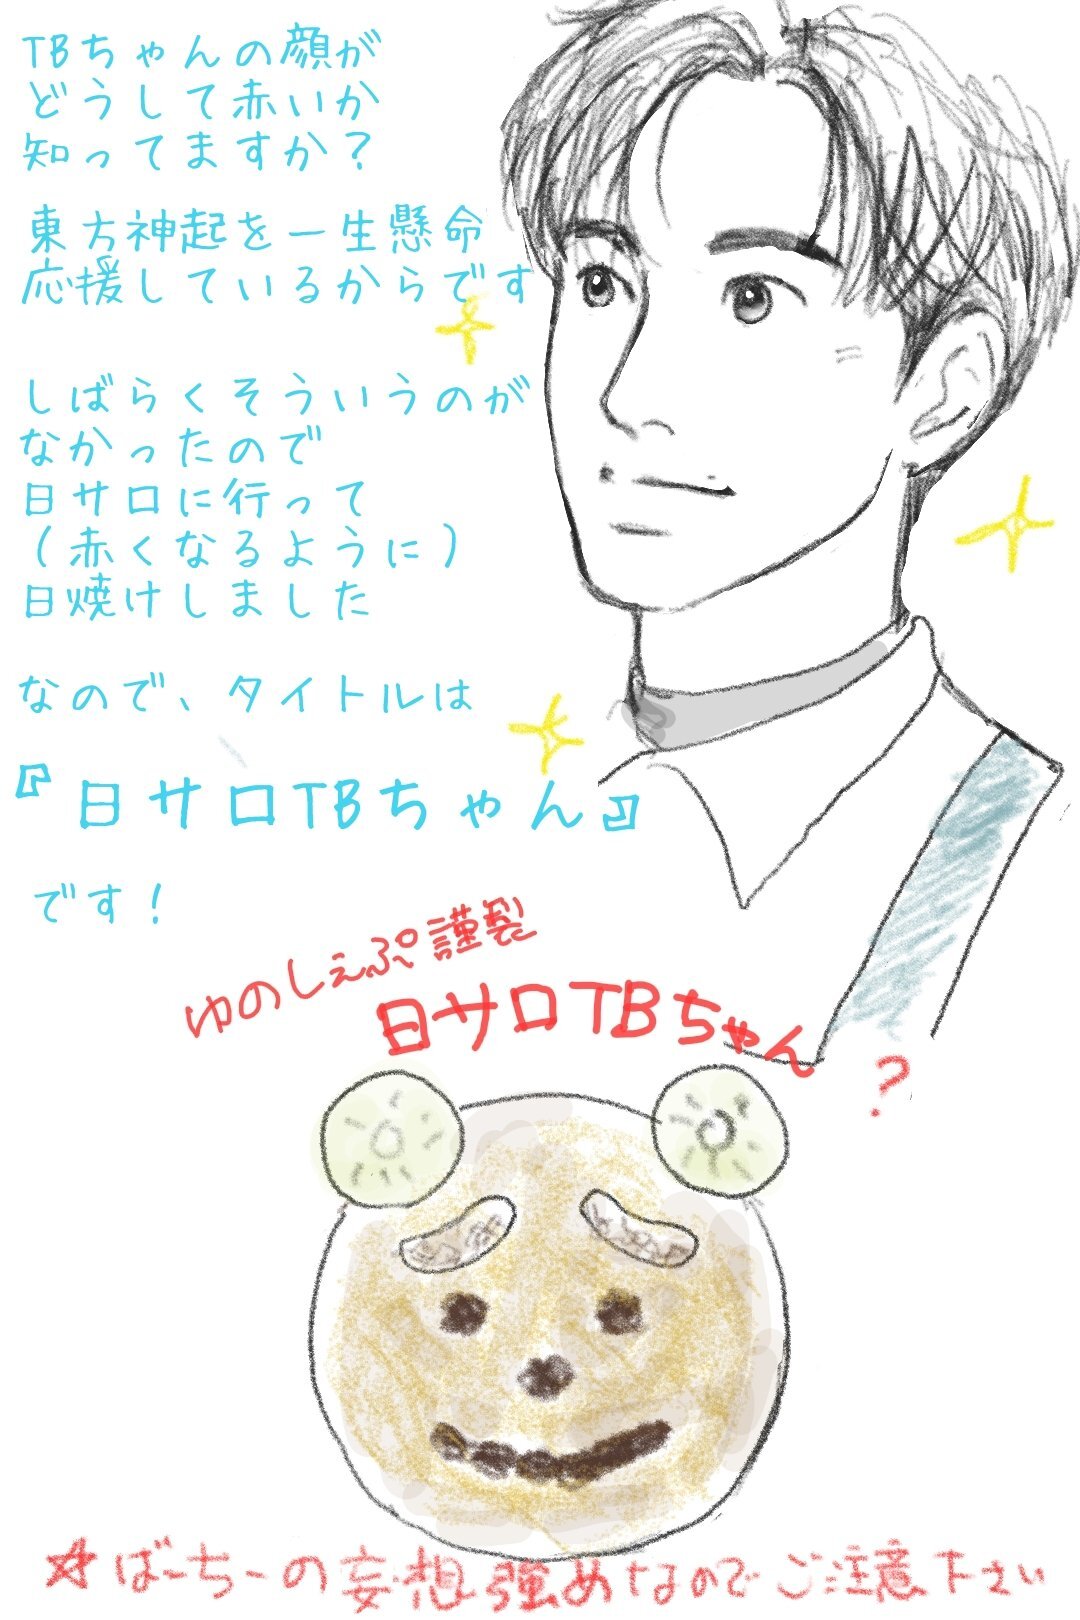 TBちゃんの顔が
どうして赤いか
知ってますか？
東方神起を一生懸命
応援しているからです
しばらくそういうのが
なかったので
日サロに行って
（赤くなるように）
日焼けしました
なので、タイトルは
『日サロTBちゃん』
です！
ゆのしぇふ゜謹製
日サロTBちゃん
？
☆ばーちーの妄想強めなのでご注意下さい